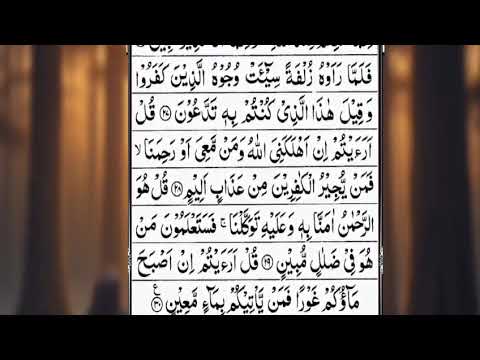 فَلَمَّا رَاَوْهُ زُلْفَةً سِيْٓـَٔتْ وُجُوْهُ الَّذِيْنَ كَفَرُوْا
وَ قِيْلَ هٰذَا الَّذِيْ كُنْتُمْ بِهٖ تَدَّعُوْنَ ﴿۲۷﴾ قُلْ
اَرَءَيْتُمْ اِنْ اَهْلَكَنِيَ اللّٰهُ وَمَنْ مَّعِيَ اَوْ رَحِمَنَا ۙ
فَمَنْ يُّجِيْرُ الْكٰفِرِيْنَ مِنْ عَذَابٍ اَلِيْمٍ ﴿۲۸﴾ قُلْ هُوَ
الرَّحْمٰنُ اٰمَنَّا بِهٖ وَعَلَيْهِ تَوَكَّلْنَا ۚ فَسَتَعْلَمُوْنَ مَنْ
هُوَ فِيْ ضَلٰلٍ مُّبِيْنٍ ﴿۲۹﴾ قُلْ اَرَءَيْتُمْ اِنْ اَصْبَحَ
مَآؤُكُمْ غَوْرًا فَمَنْ يَّاْتِيْكُمْ بِمَآءٍ مَّعِيْنٍ ﴿۳۰﴾